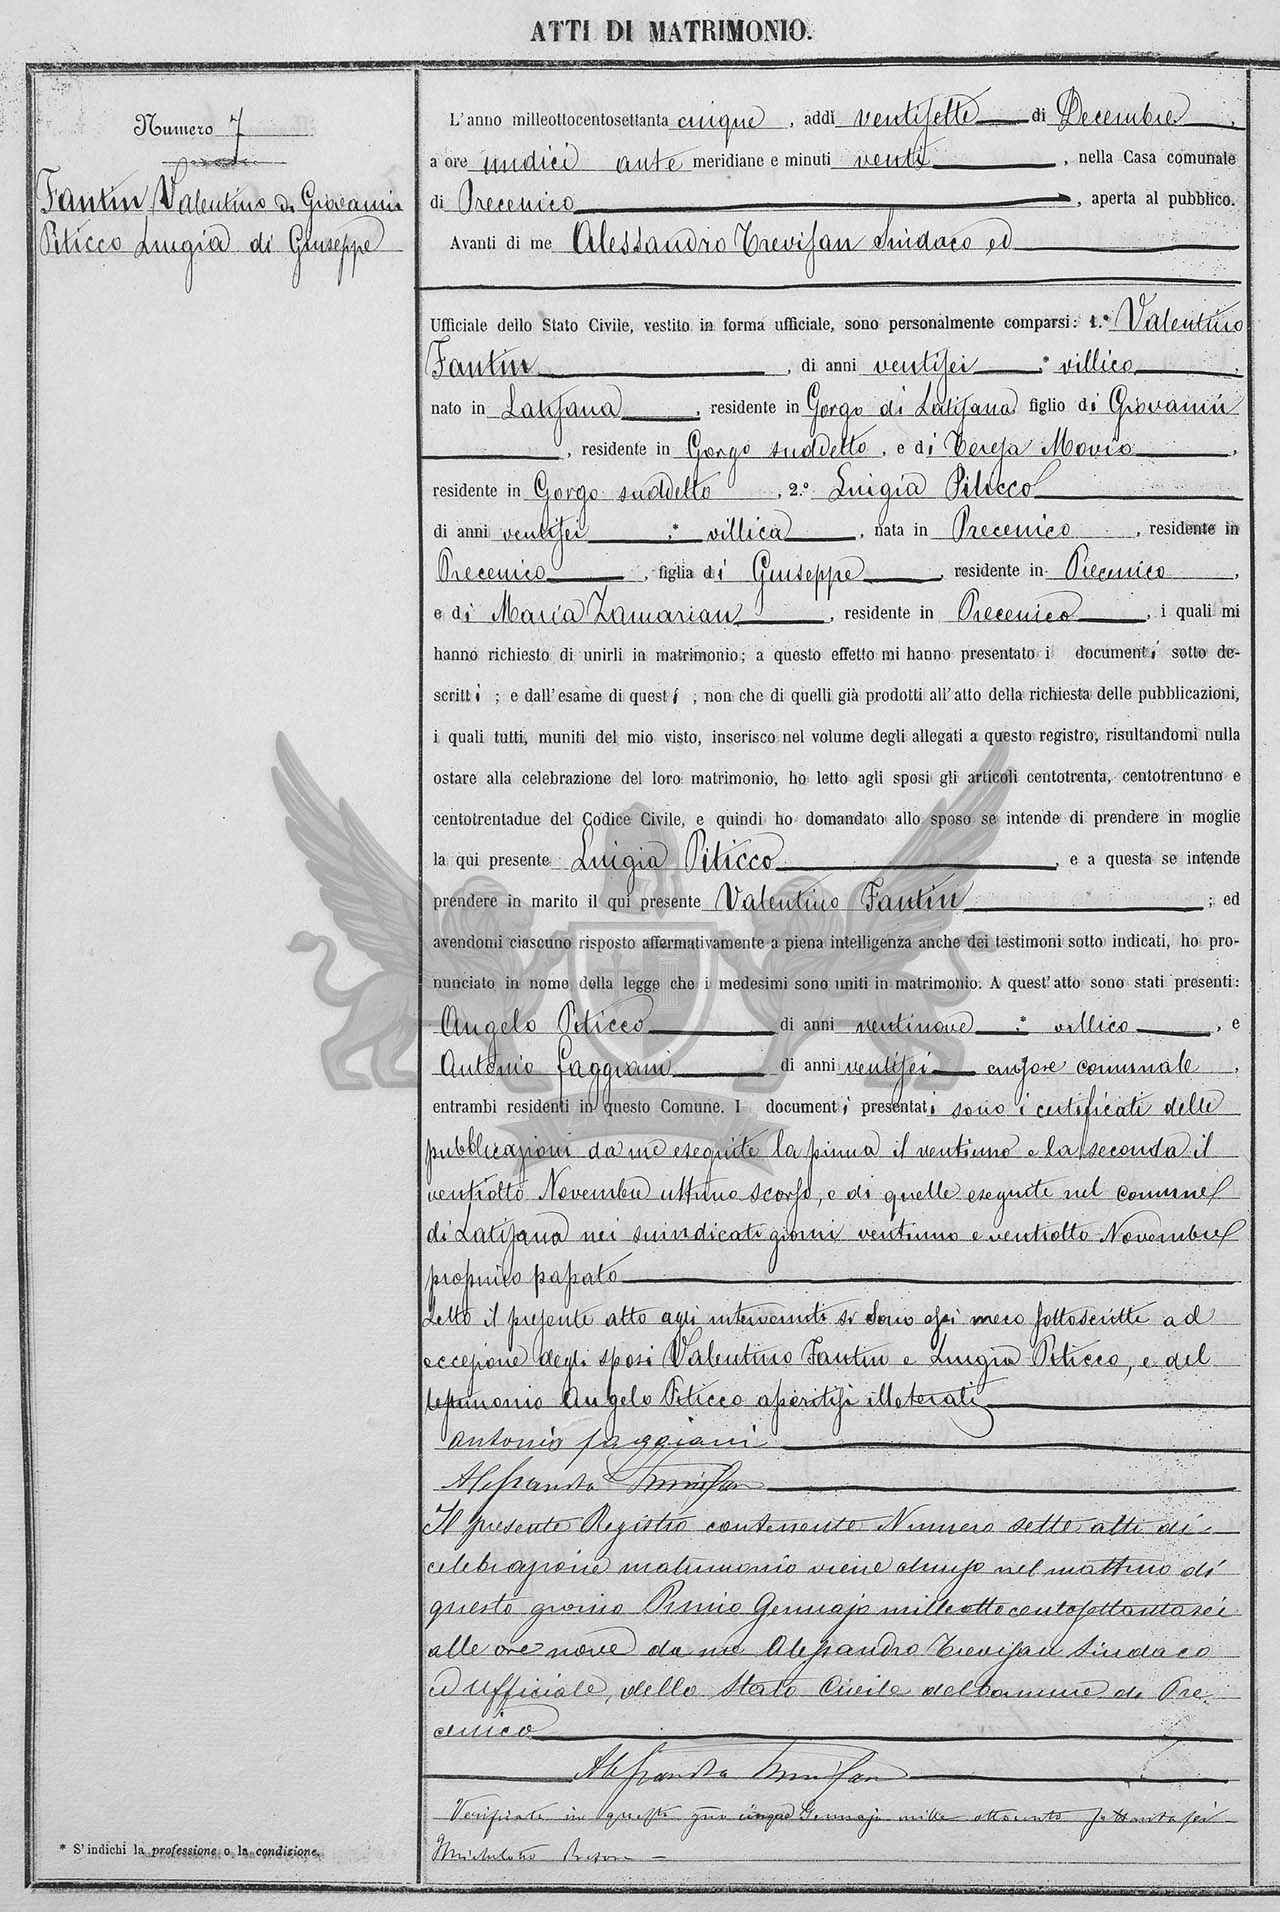 ATTI DI MATRIMONIO.
Numero 7
Fantin Valentino di Giovanni
Piticco Luigia di Giuseppe
L'anno milleottocentosettanta cinque, addì ventisette di Decembre,
a ore undici ante meridiane e minuti venti, nella Casa comunale
di Precenico, aperta al pubblico.
Avanti di me Alessandro Trevisan Sindaco ed
Ufficiale dello Stato Civile, vestito in forma ufficiale, sono personalmente comparsi: 1.° Valentino
Fantin, di anni ventisei * villico
nato in Latisana, residente in Gorgo di Latisana figlio di Giovanni
, residente in Gorgo suddetto, e di Teresa Movio,
residente in Gorgo suddetto, 2.° Luigia Piticco
di anni ventisei ; * villica, nata in Precenico, residente in
Precenico, figlia di Giuseppe, residente in Precenico,
e di Maria Zamarian, residente in Precenico, i quali mi
hanno richiesto di unirli in matrimonio; a questo effetto mi hanno presentato i documenti sotto de-
scritti; e dall'esame di questi; non che di quelli già prodotti all'atto della richiesta delle pubblicazioni,
i quali tutti, muniti del mio visto, inserisco nel volume degli allegati a questo registro, risultandomi nulla
ostare alla celebrazione del loro matrimonio, ho letto agli sposi gli articoli centotrenta, centotrentuno e
centotrentadue del Codice Civile, e quindi ho domandato allo sposo se intende di prendere in moglie
la qui presente Luigia Piticco, e a questa se intende
prendere in marito il qui presente Valentino Fantin; ed
avendomi ciascuno risposto affermativamente a piena intelligenza anche dei testimoni sotto indicati, ho pro-
nunciato in nome della legge che i medesimi sono uniti in matrimonio. A quest'atto sono stati presenti:
Angelo Piticco di anni ventinove * villico, e
Antonio Faggiani di anni ventisei cursore comunale,
entrambi residenti in questo Comune. I documenti presentati sono i certificati delle
pubblicazioni da me eseguite la prima il ventiuno e la seconda il
ventiotto Novembre ultimo scorso, e di quelle eseguite nel comune
di Latisana nei suindicati giorni ventiuno e ventiotto Novembre
proprio passato
Letto il presente atto agli intervenuti si sono essi meco sottoscritti ad
eccezione degli sposi Valentino Fantin e Luigia Piticco, e del
testimonio Angelo Piticco asseritisi illeterati
Antonio Faggiani
Alessandro Trevisan
Il presente Registro contenente Numero sette atti di
celebrazione matrimonio viene chiuso nel mattino di
questo giorno Primo Gennajo milleottocentosettantasei
alle ore nove da me Alessandro Trevisan Sindaco
ed Ufficiale dello Stato Civile del Comune di Pre-
cenico
Alessandro Trevisan
Verificato in questo giorno cinque Gennajo mille ottocento settantasei
* S'indichi la professione o la condizione.